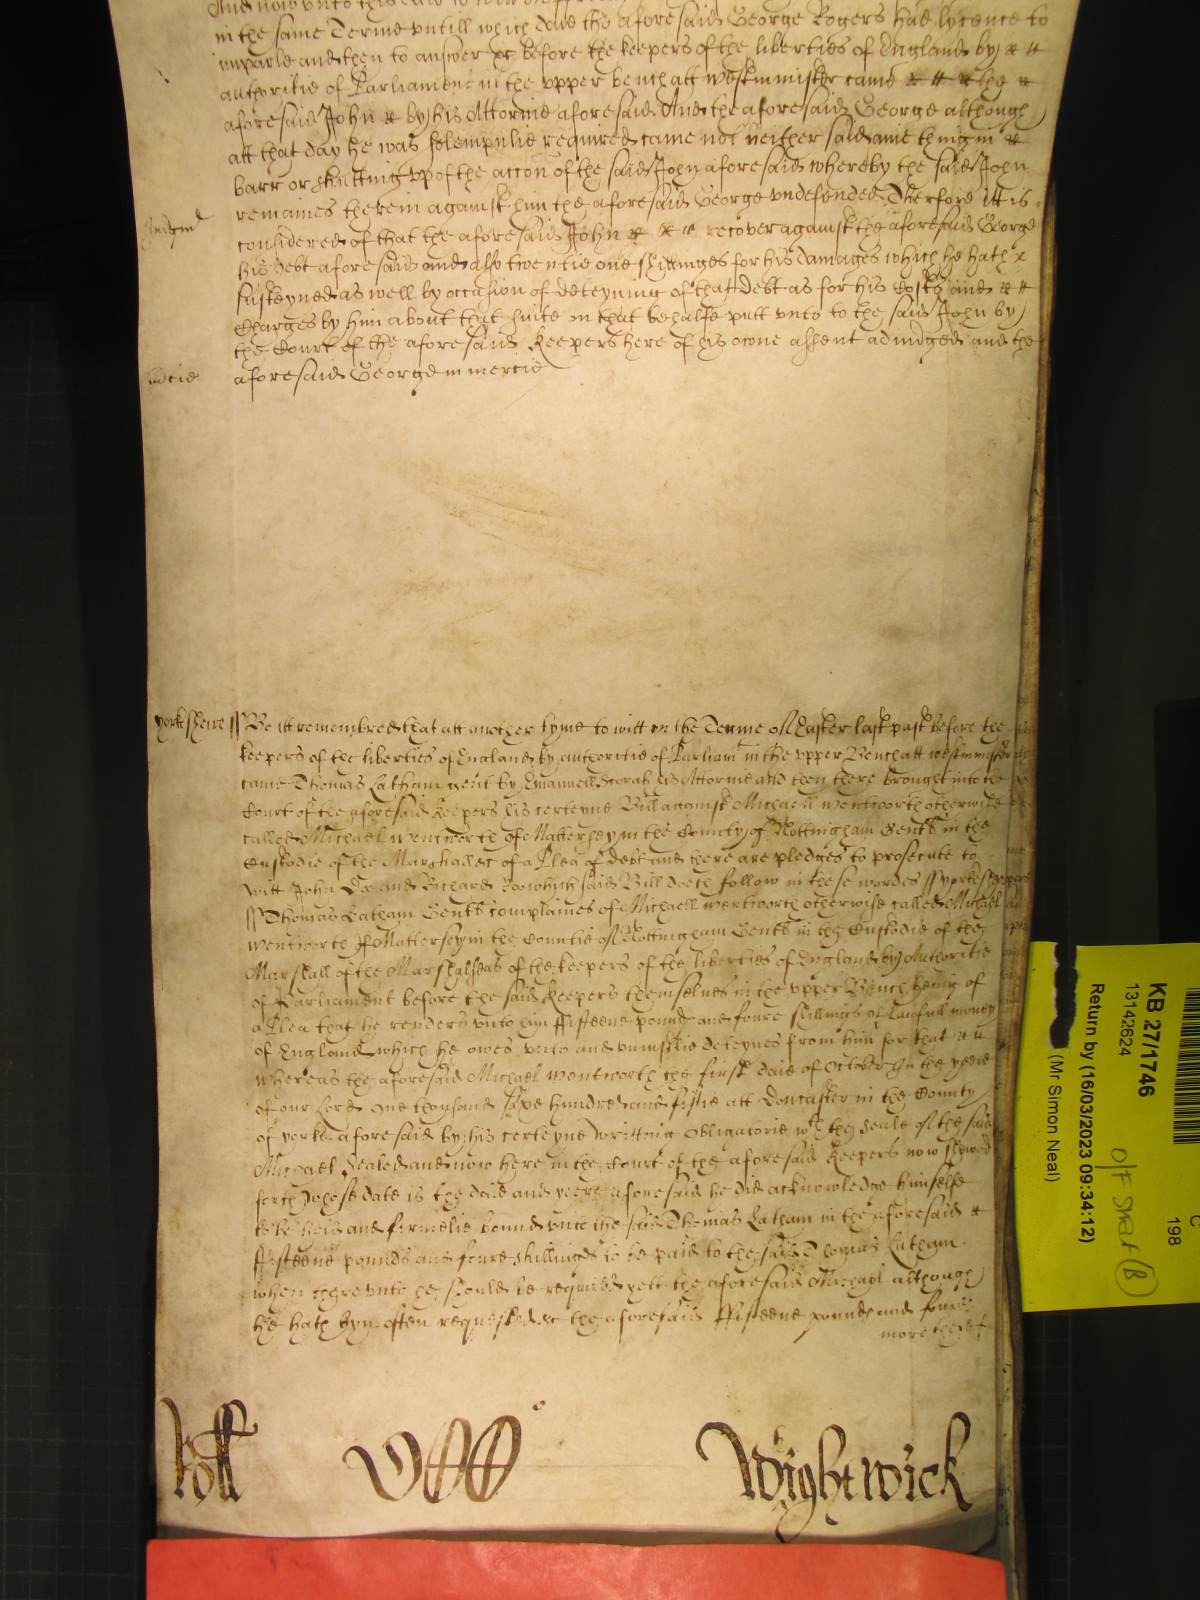 in the same Terme untill which daie the aforesaid George Rogers had lycence to
imparle and then to answer &c before the keepers of the liberties of England by
authoritie of Parliament in the upper bench att Westminster came the
aforesaid John by his Attornie aforesaid And the aforesaid George although
att that day he was solempnlie required came not neither said anie thing in
barr or shutting up of the accon of the said John aforesaid whereby the said John
remaines therein against him the aforesaid George undefended Therfore itt is
Judgmt
considered of that the aforesaid John recover against the aforesaid George
his debt aforesaid and also twentie one shillinges for his damages which he hath
susteyned as well by occasion of deteyning of that debt as for his Costs and
Charges by him about that suite in that behalfe putt unto to the said John by
the Court of the aforesaid Keepers here of his owne assent adiudged and the
mercie
aforesaid George in mercie
Yorksheire ss Be itt remembred that att another tyme to witt in the Terme of Easter last past before the
keepers of the liberties of England by authoritie of Parliamt in the upper Bench att Westminster
came Thomas Latham gent by Emanuell his Attornie and then there brought into the
Court of the aforesaid Keepers his certeyne Bill against Michaell Wentworth otherwise
called Michael Wentworth of Mattersey in the County of Nottingham Gent in the
Custodie of the Marshall &c of a Plea of debt and there are pledges to prosecute to
witt John Doe and Richard Roo which said Bill doeth follow in these wordes ss
ss Thomas Latham Gent complaines of Michaell Wentworth otherwise called Michael
Wentworth of Mattersey in the Countie of Nottingham Gent in the Custodie of the
Marshall of the Marshalseas of the keepers of the liberties of England by Authoritie
of Parliament before the said Keepers themselves in the upper Bench being of
a Plea that he renders unto him ffifteene pounds and foure shillings of lawfull money
of England which he owes unto and uniustlie deteynes from him for that
Whereas the aforesaid Michael Wentworth the first daie of October in the yeere
of our Lord one thousand sixe hundred and fiftie att Doncaster in the County
of Yorke aforesaid by his certeyne writting obligatorie wth the seale of the said
Michael sealed and now here in the Court of the aforesaid Keepers now shewed
forth whose date is the daie and yeere aforesaid he did acknowledge himselfe
to be held and firmelie bound unto the said Thomas Latham in the aforesaid
ffifteene pounds and foure shillinges to be paid to the said Thomas Latham
when thereunto he should be required yett the aforesaid Michael although
he hath byn often requested &c the aforesaid ffifteene pounds and foure
more
Roll
Wightwick
KB 27/1746
13142624
Return by (16/03/2023 09:34:12)
(Mr Simon Neal)
198
C
B